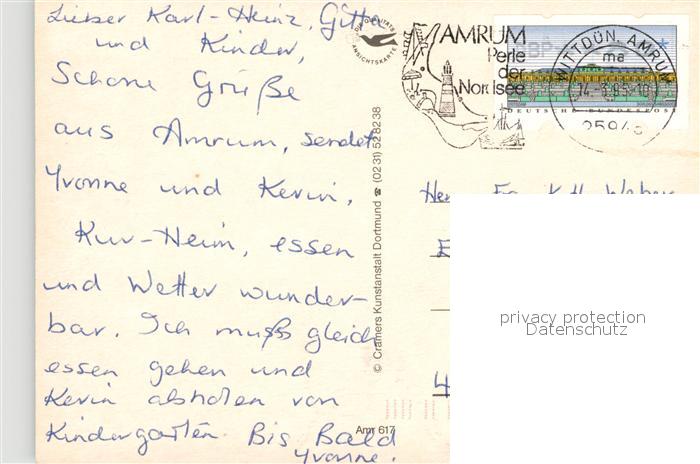 Lieber Karl-Heinz, Gitta
und Kinder,
Schöne Grüße
aus Amrum, sendet
Yvonne und Kevin,
Kur-Heim, essen
und Wetter wunder-
bar. Ich muß gleich
essen gehen und
Kevin abholen von
Kindergarten. Bis Bald
Yvonne.
ANSICHTSKARTE
© Cramers Kunstanstalt Dortmund ☎ (0231) 528238
Amr 617
AMRUM
Perle
der
Nordsee
WITTDÜN, AMRUM
ma
DEUTSCHE BUNDESPOST
Weber
privacy protection
Datenschutz